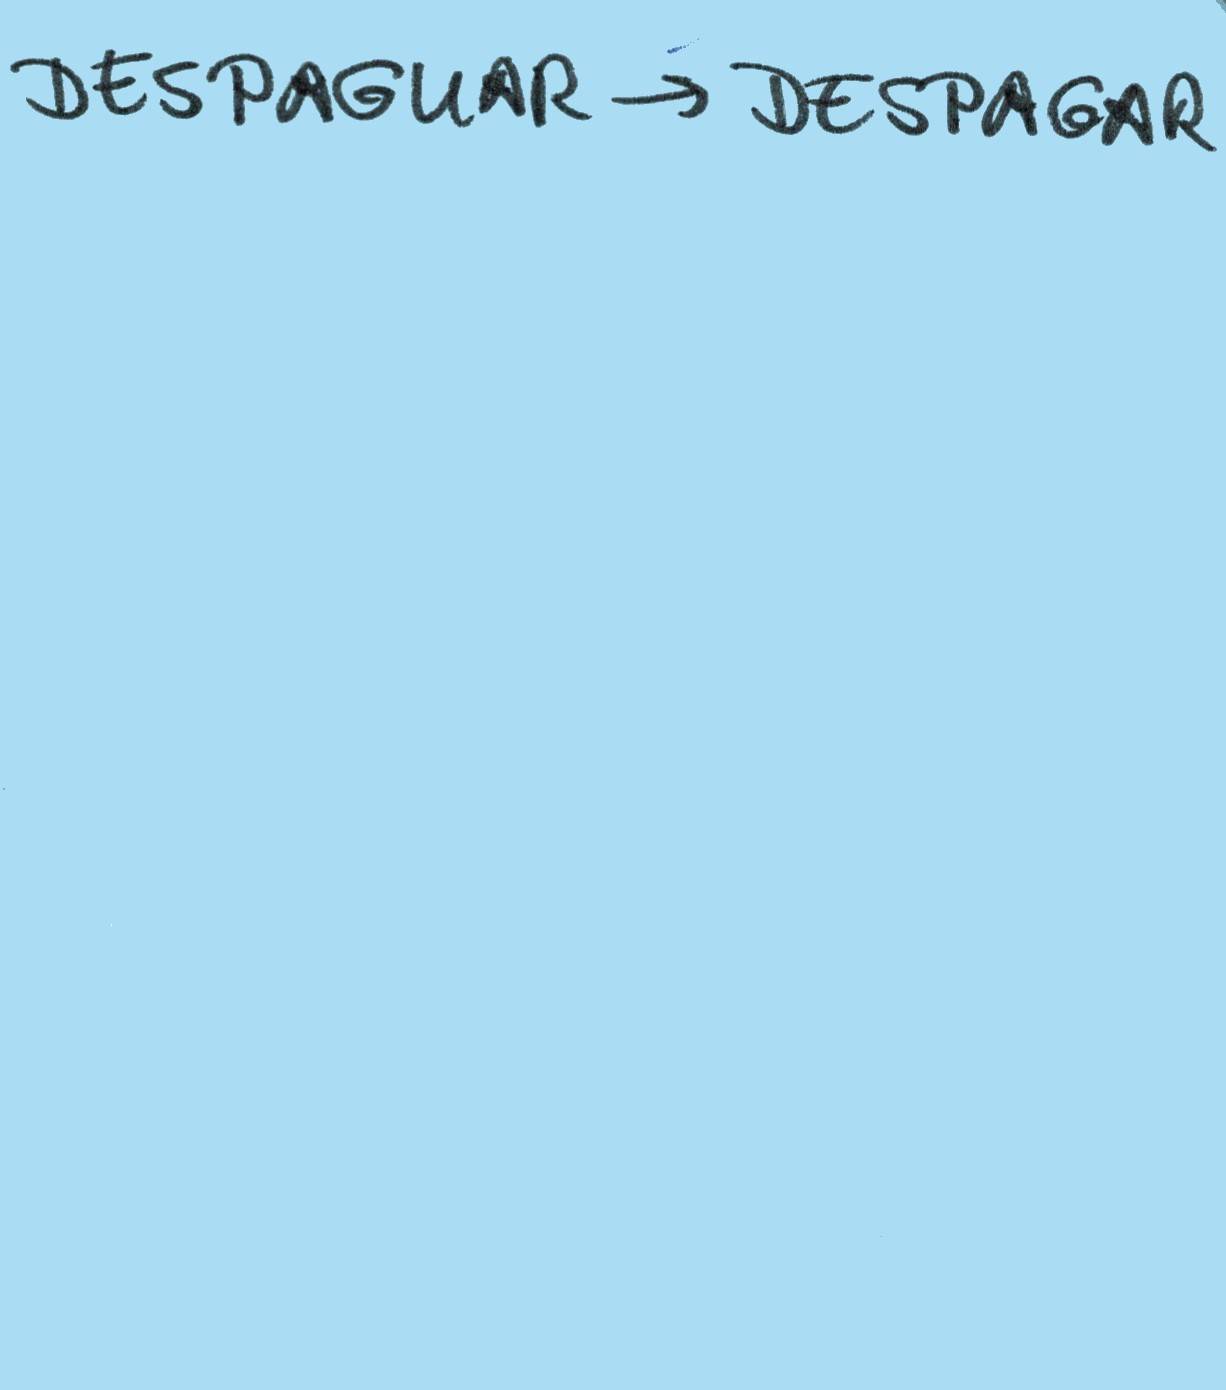 DESPAGUAR → DESPAGAR